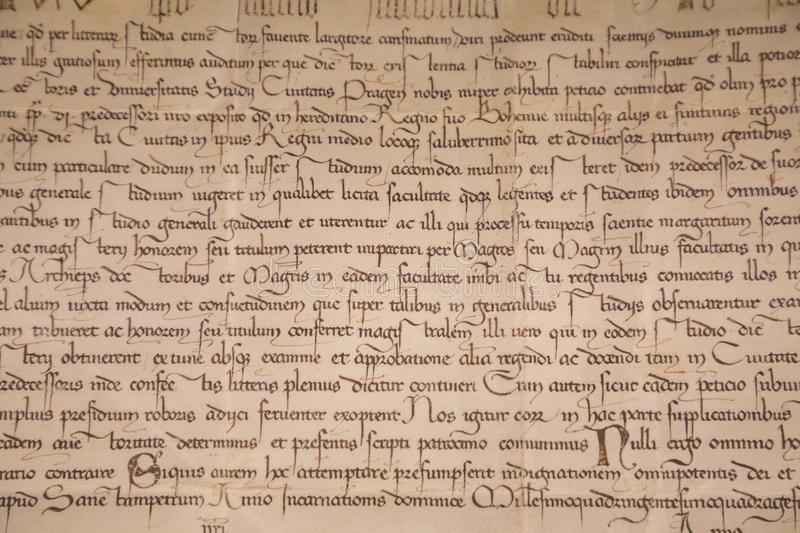 ne, qd per litterar studia cunctor favente largitore carismatum, viri prodeunt eruditi scientiis divinumque nominis
er illis gratiosum efferimus auditum per que dictor existentia studior stabiliri conspicitur et illa potior
rectoris et Universitatis Studii Civitatis Pragen nobis nuper exhibita peticio continebat qd olim pro p
nti pp. vi. predecessori nro exposito qd in hereditario Regno suo Bohemie multisque aliis ei finitimis region
qdque dicta Civitas in ipius Regni medio locoque saluberrimo sita et a diversar partium gentibus
cum particulare dudum in ea fuisset studium, accomoda multum existeret idem predecessor de suor
ous generale studium vigeret in qualibet licita facultate qdque legentes et studentes ibidem omnibus
antibus in studio generali gauderent et uterentur ac illi qui processu temporis scientie margaritum
ac magisterii honorem seu titulum peterent impartiri per Magros seu Magrm illius facultatis in qu
s Archieps doctoribus et Magris in eadem facultate inibi actu regentibus convocatis illos in
el alium iuxta modum et consuetudinem que super talibus in generalibus studiis observarentur exa
am tribueret ac honorem seu titulum conferret magistralem illi vero qui in eodem studio dict
sterii obtinerent ex tunc absque examine et approbatione alia regendi ac docendi tam in Civitate
redecessoris inde confectis litteris plenius dicitur contineri Cum autem sicut eadem peticio subiu
mplius presidium roboris adiici ferventer exoptent Nos igitur eorr in hac parte supplicationibus
eadem auctoritate determinus et presentis scripti patrocinio communimus Nulli ergo omnino ho
rario contraire Siquis autem hoc attemptare presumpserit indignationem omnipotentis dei et
apud Sanctumpetrum Anno Incarnationis dominice Millesimoquadringentesimoquadragesi